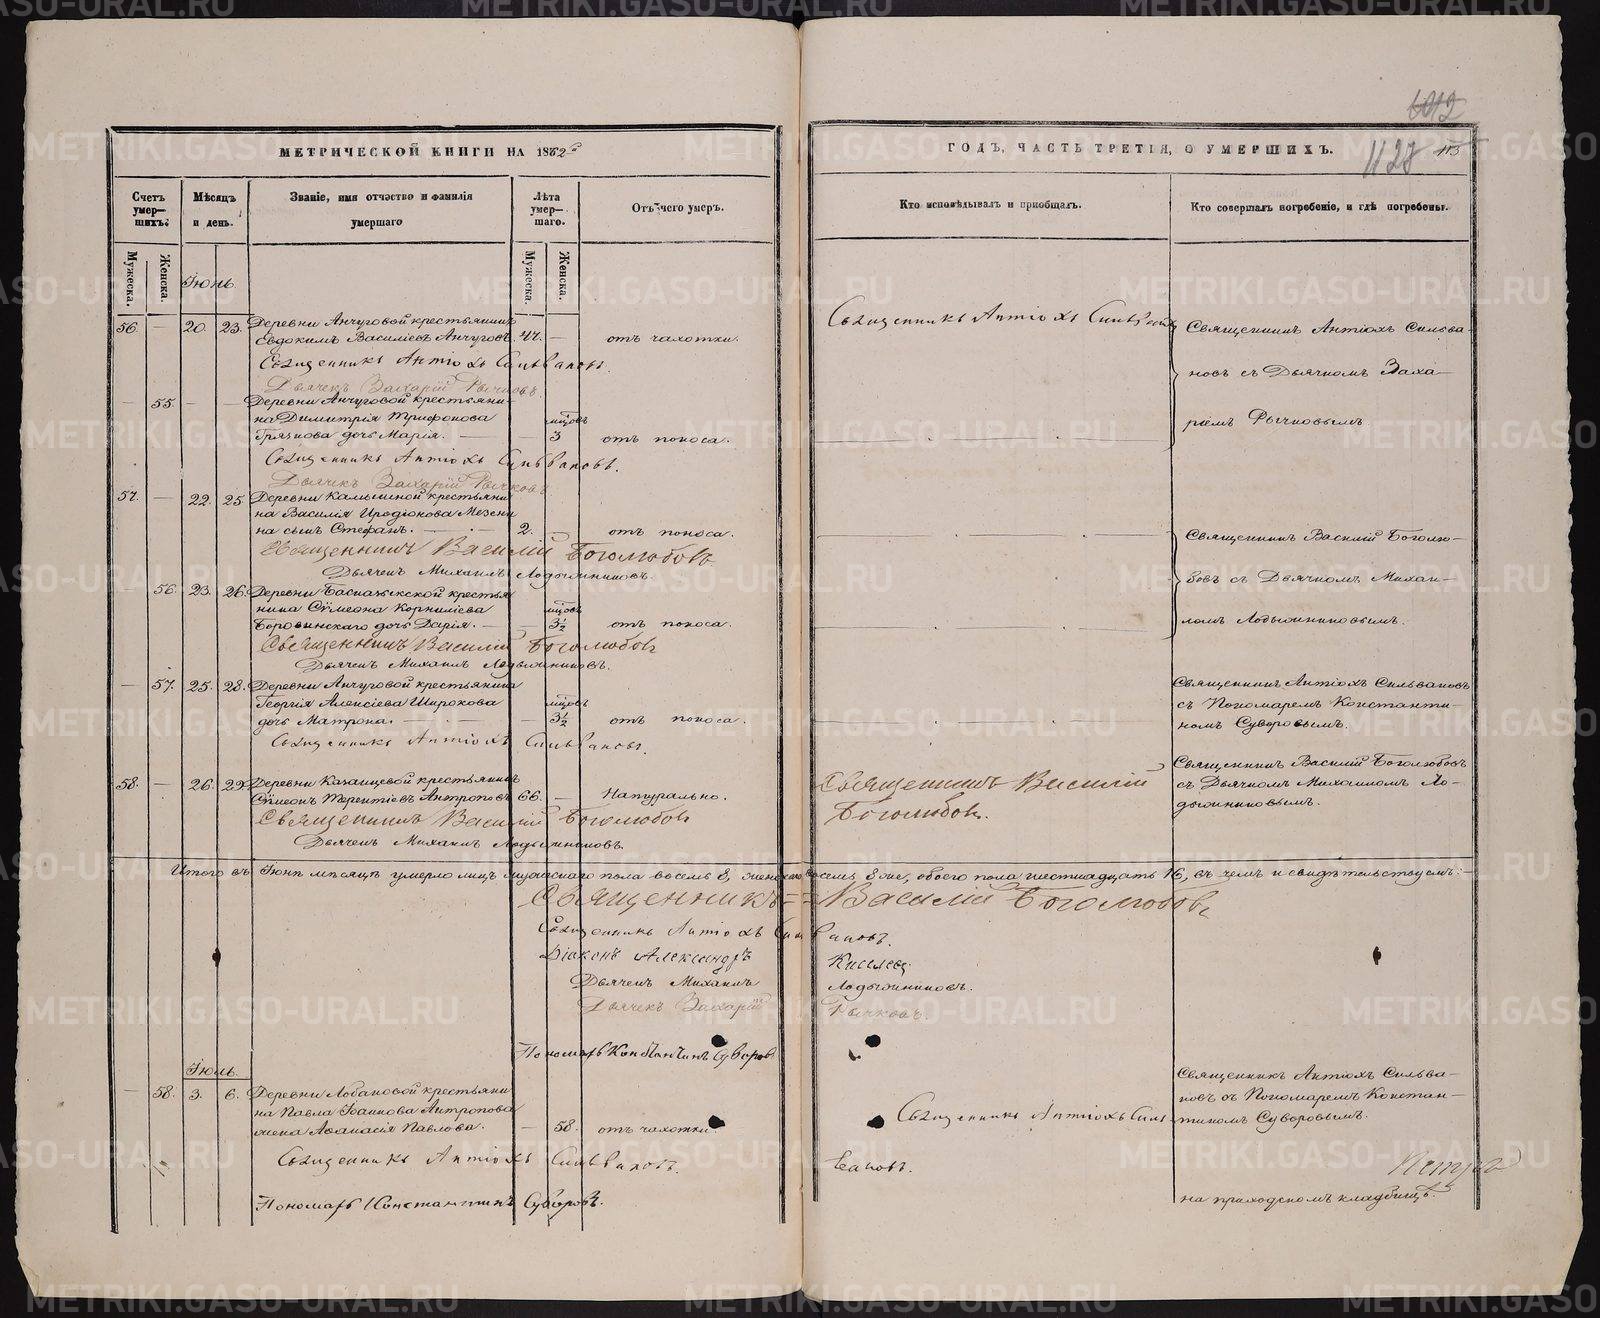 METRIKI.GASO-URAL.RU
МЕТРИЧЕСКОЙ КНИГИ НА 1862
Счетъ умер-шихъ.
Мѣсяцъ и день.
Званіе, имя отчество и фамилія умершаго
Лѣта умер-шаго.
Отъ чего умеръ.
Мужеска.
Женска.
Мужеска.
Женска.
Іюнь.
56. — 20. 23. Деревни Анчуговой крестьянинъ
Евдокимъ Василіевъ Анчуговъ. 47. — отъ чахотки.
Священникъ Антіохъ Сильвановъ.
Дьячекъ Захарій Рычковъ
— 55. — — Деревни Анчуговой крестьяни-
на Димитрія Трифонова мцовъ
Грязнова дочь Марія. — — 3 отъ поноса.
Священникъ Антіохъ Сильвановъ.
Дьячекъ Захарій Рычковъ
57. — 22. 25 Деревни крестьяни
на Василія Иродіонова Мезени
на сынъ Стефанъ. — 2. — отъ поноса.
Священникъ Василій Боголюбовъ
Дьячекъ Михаилъ Лодыжниковъ.
— 56. 23. 26. Деревни крестья
нина Сѵмеона Корниліева мцовъ
Боровинскаго дочь Дарія. — — 3½ отъ поноса.
Священникъ Василій Боголюбовъ
Дьячекъ Михаилъ Лодыжниковъ.
— 57. 25. 28. Деревни Анчуговой крестьянина
Георгія Алексіева Широкова мцовъ
дочь Матрона. — — 3½ отъ поноса.
Священникъ Антіохъ Сильвановъ.
58. — 26. 29. Деревни Казанцевой крестьянинъ
Сѵмеонъ Терентіевъ Антроповъ 66. — Натурально.
Священникъ Василій Боголюбовъ
Дьячекъ Михаилъ Лодыжниковъ.
Итого въ Іюнѣ мѣсяцѣ умерло лицъ мужескаго пола восемь 8, женскаго восемь 8 же, обоего пола шестнадцать 16, въ чемъ и свидѣтельствуемъ:
Священникъ == Василій Боголюбовъ
Священникъ Антіохъ Сильвановъ.
Діаконъ Александръ Киселевъ
Дьячекъ Михаилъ Лодыжниковъ.
Дьячекъ Захарій Рычковъ.
Пономарь Константинъ Суворовъ
Іюль.
— 58. 3. 6. Деревни Лобановой крестьяни-
на Павла Іоаннова Антропова
жена Аѳанасія Павлова. — 58. отъ чахотки.
Священникъ Антіохъ Сильвановъ.
Пономарь Константинъ Суворовъ.
1012
1128
113
ГОДЪ, ЧАСТЬ ТРЕТІЯ, О УМЕРШИХЪ.
Кто исповѣдывалъ и пріобщалъ.
Кто совершалъ погребеніе, и гдѣ погребены.
Священникъ Антіохъ Сильвановъ
Священникъ Антіохъ Сильва-
новъ съ Дьячкомъ Заха-
ріемъ Рычковымъ
Священникъ Василій Боголю-
бовъ съ Дьячкомъ Михаи-
ломъ Лодыжниковымъ.
Священникъ Антіохъ Сильвановъ
съ Пономаремъ Константи-
номъ Суворовымъ.
Священникъ Василій
Боголюбовъ.
Священникъ Василій Боголюбовъ
съ Дьячкомъ Михаиломъ Ло-
дыжниковымъ.
Священникъ Антіохъ Силь
вановъ.
Священникъ Антіохъ Сильва-
новъ съ Пономаремъ Констан-
тиномъ Суворовымъ.
на приходскомъ кладбищѣ.